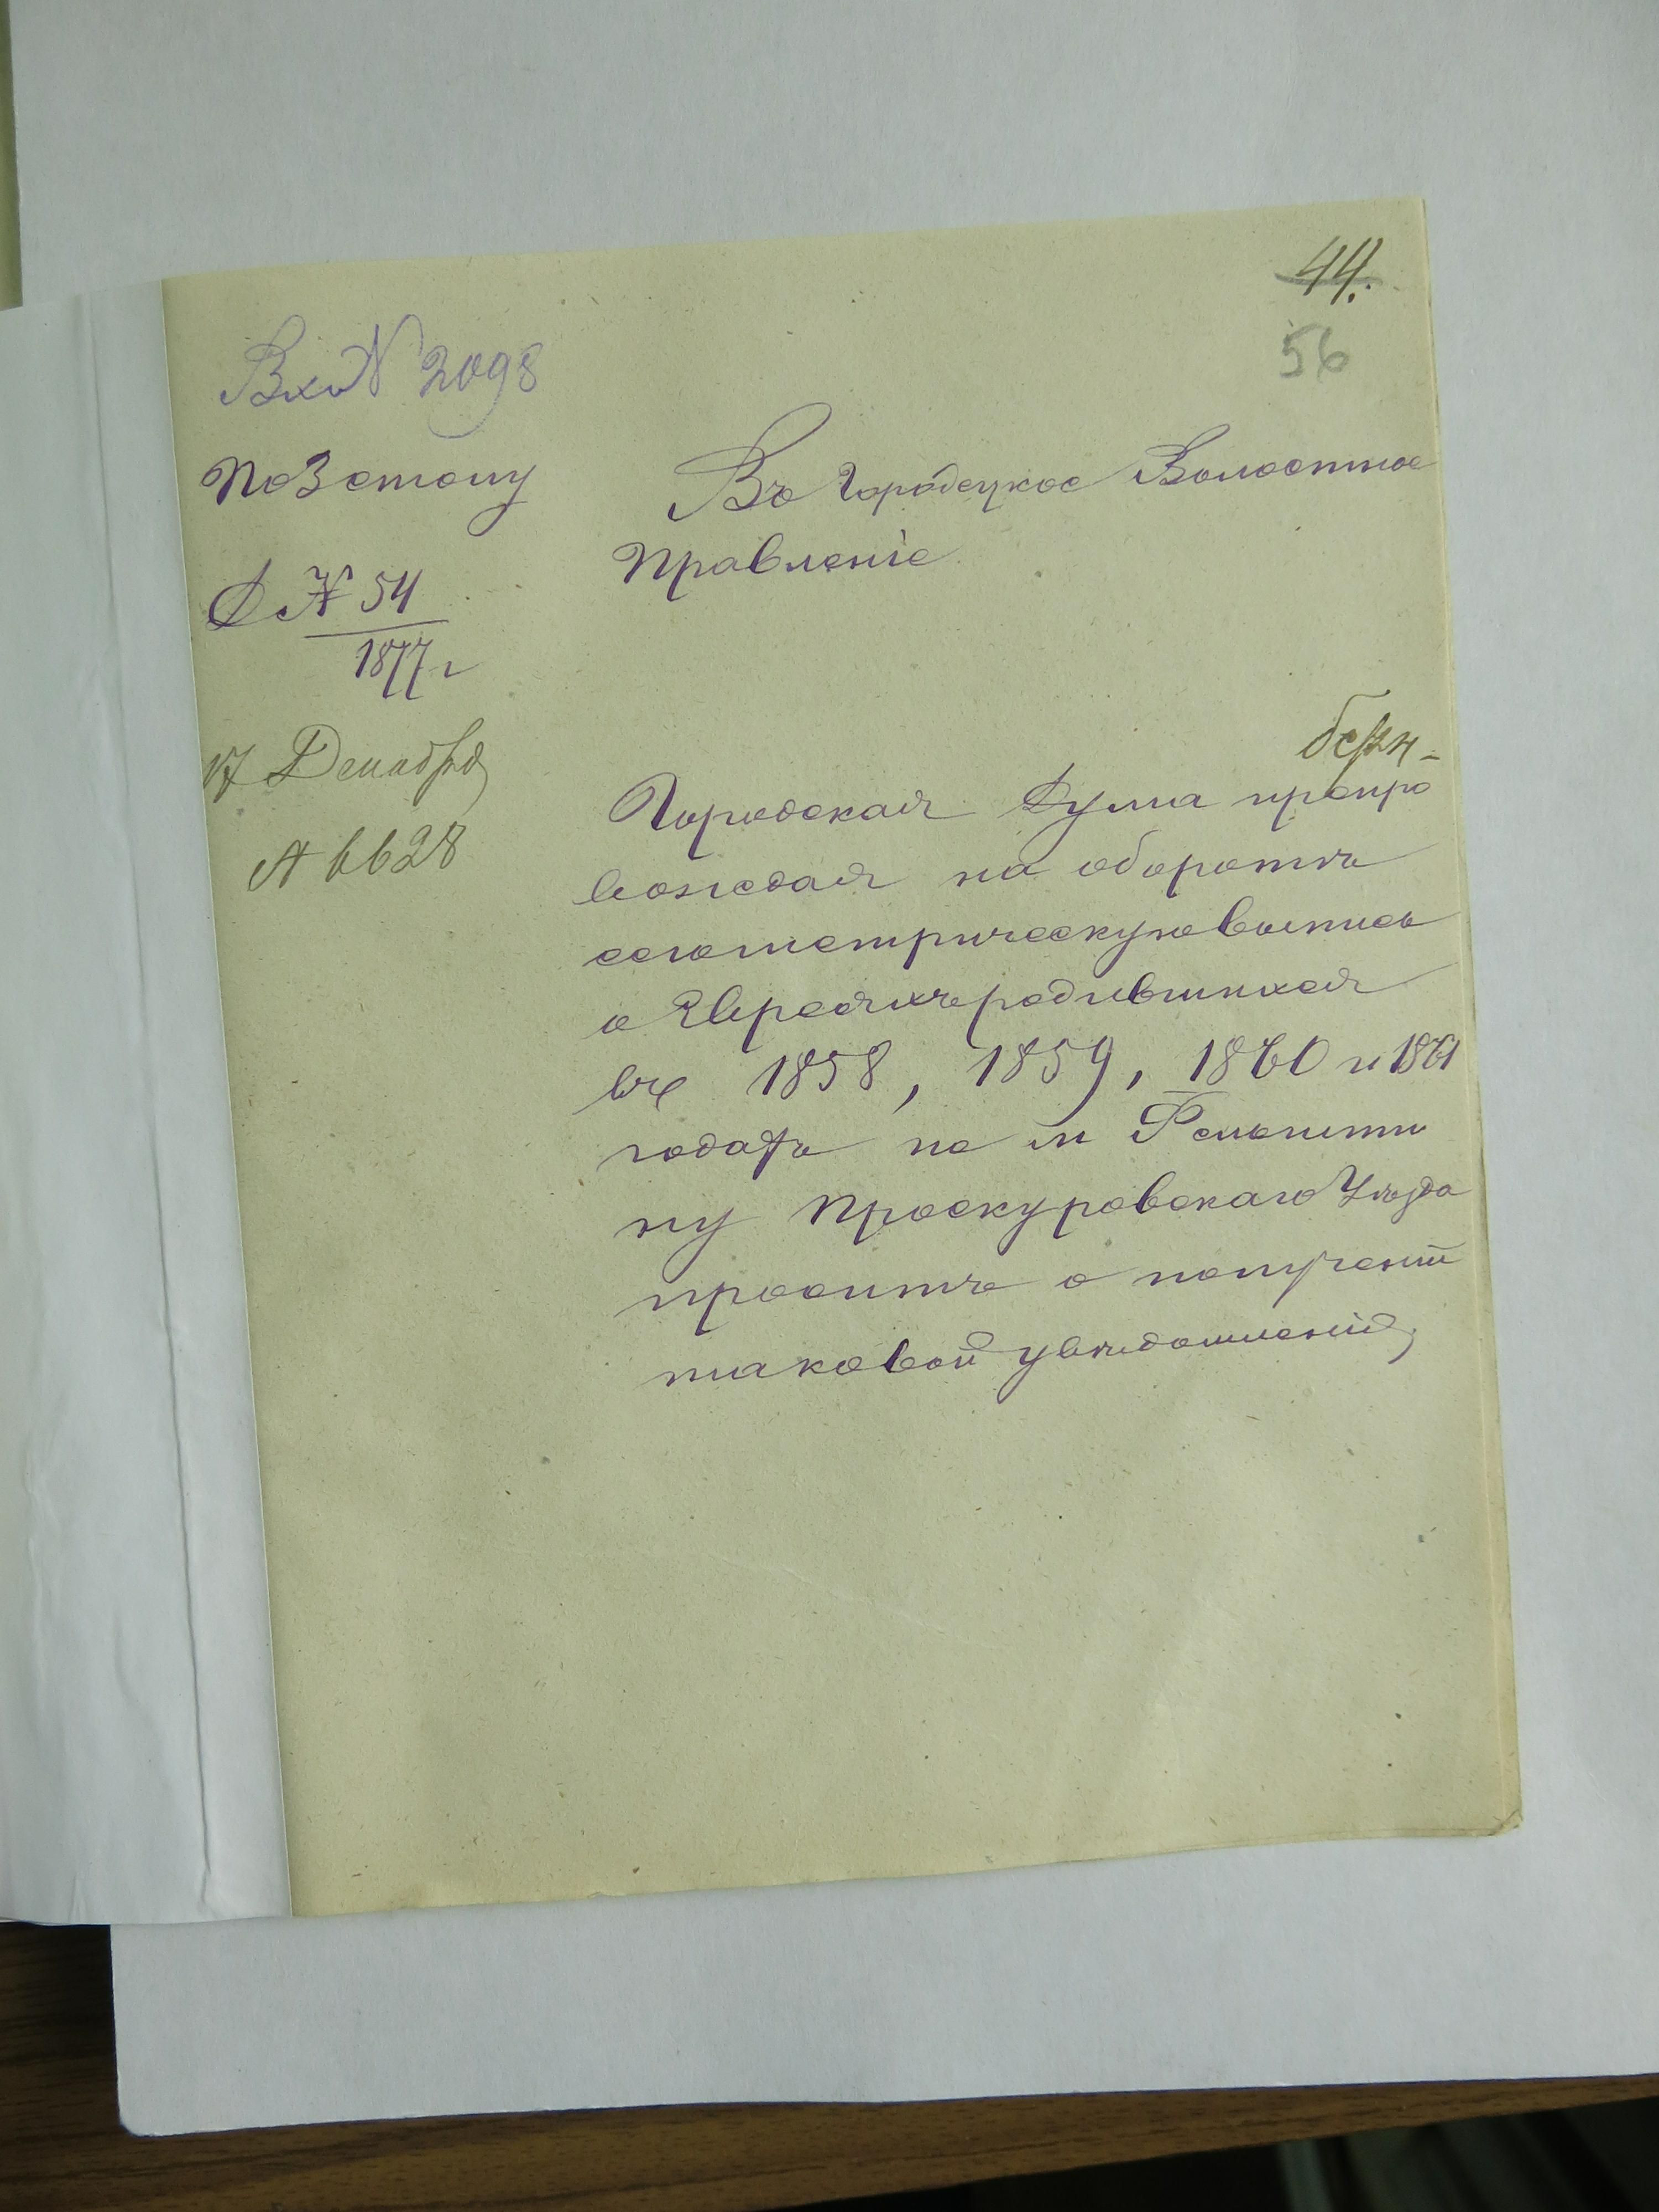 44.
56
Вхо N 2098
По 3 столу
Д № 54
1877 г
17 Декабря
№ 6628
Въ Городецкое Волостное
Правленіе
Городская Дума препро
вождая на оборотѣ
сего метрическую выпись
о Евреяхъ родившихся
въ 1858, 1859, 1860 и 1861
годахъ по м Фельшти
ну Проскуровскаго Уѣзда
проситъ о получении
таковой увѣдомленія